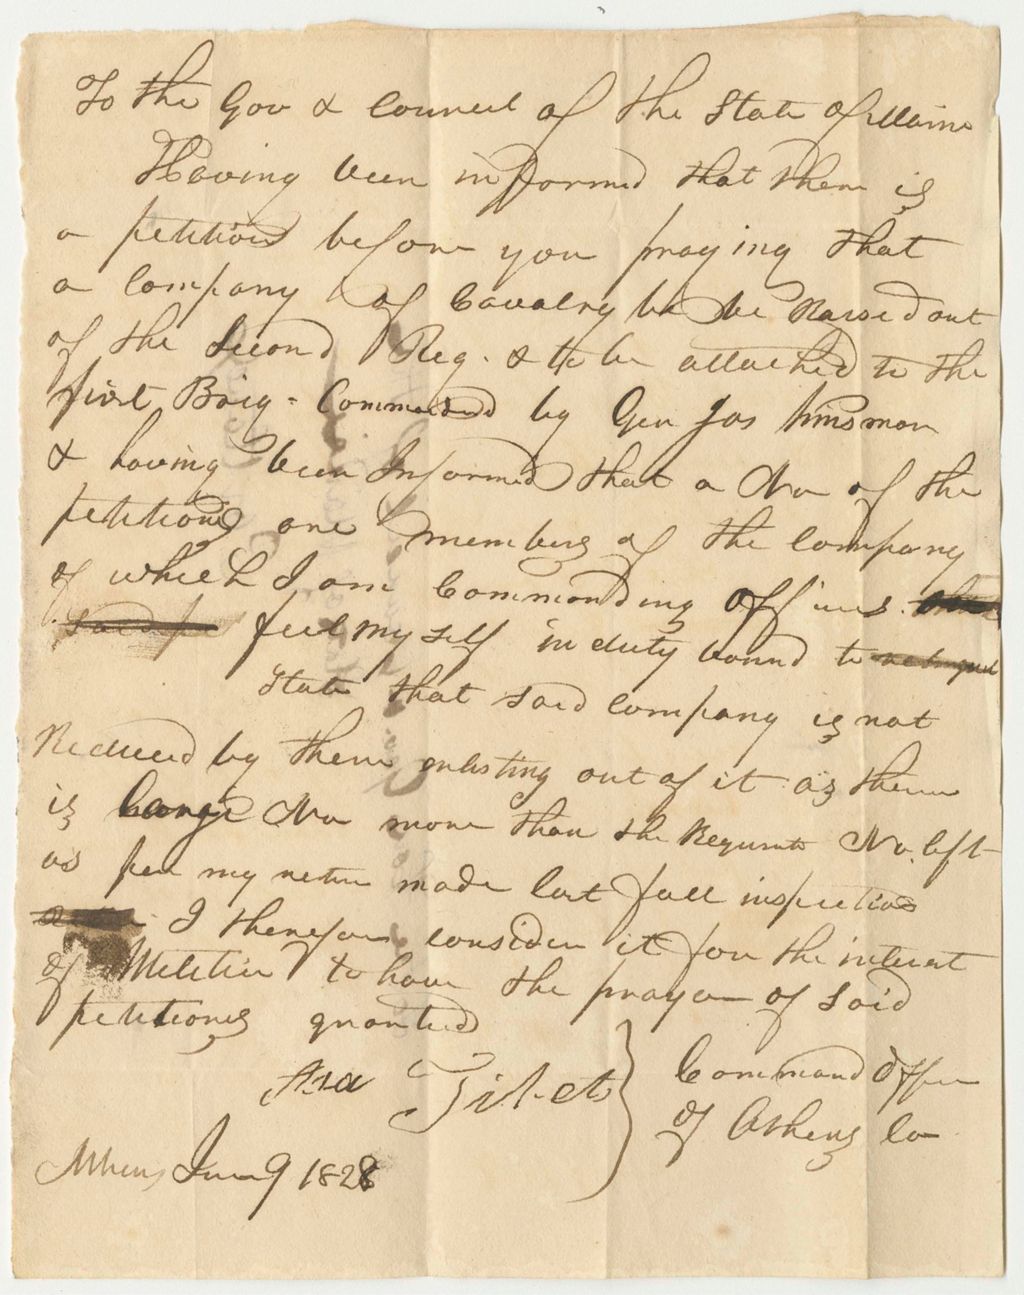 To the Gov & Council of the State of Maine
Having been informed that there is
a petition before you praying that
a Company of Cavalry be Raised out
of the Second Reg. & to be attached to the
first Brig - Commanded by Gen Jos
& having been Informed that a No of the
petitions are members of the Company
of which I am Commanding Officer
feel my self in duty bound to
State that said Company is not
Reduced by there enlisting out of it as there
is Large No more than the Requisite No. left
as per my return made last fall inspection
I therefore consider it for the interest
of Militia to have the prayer of said
petitioners granted
Asa
Command Officer
of Athens Co
Athens June 9 1828